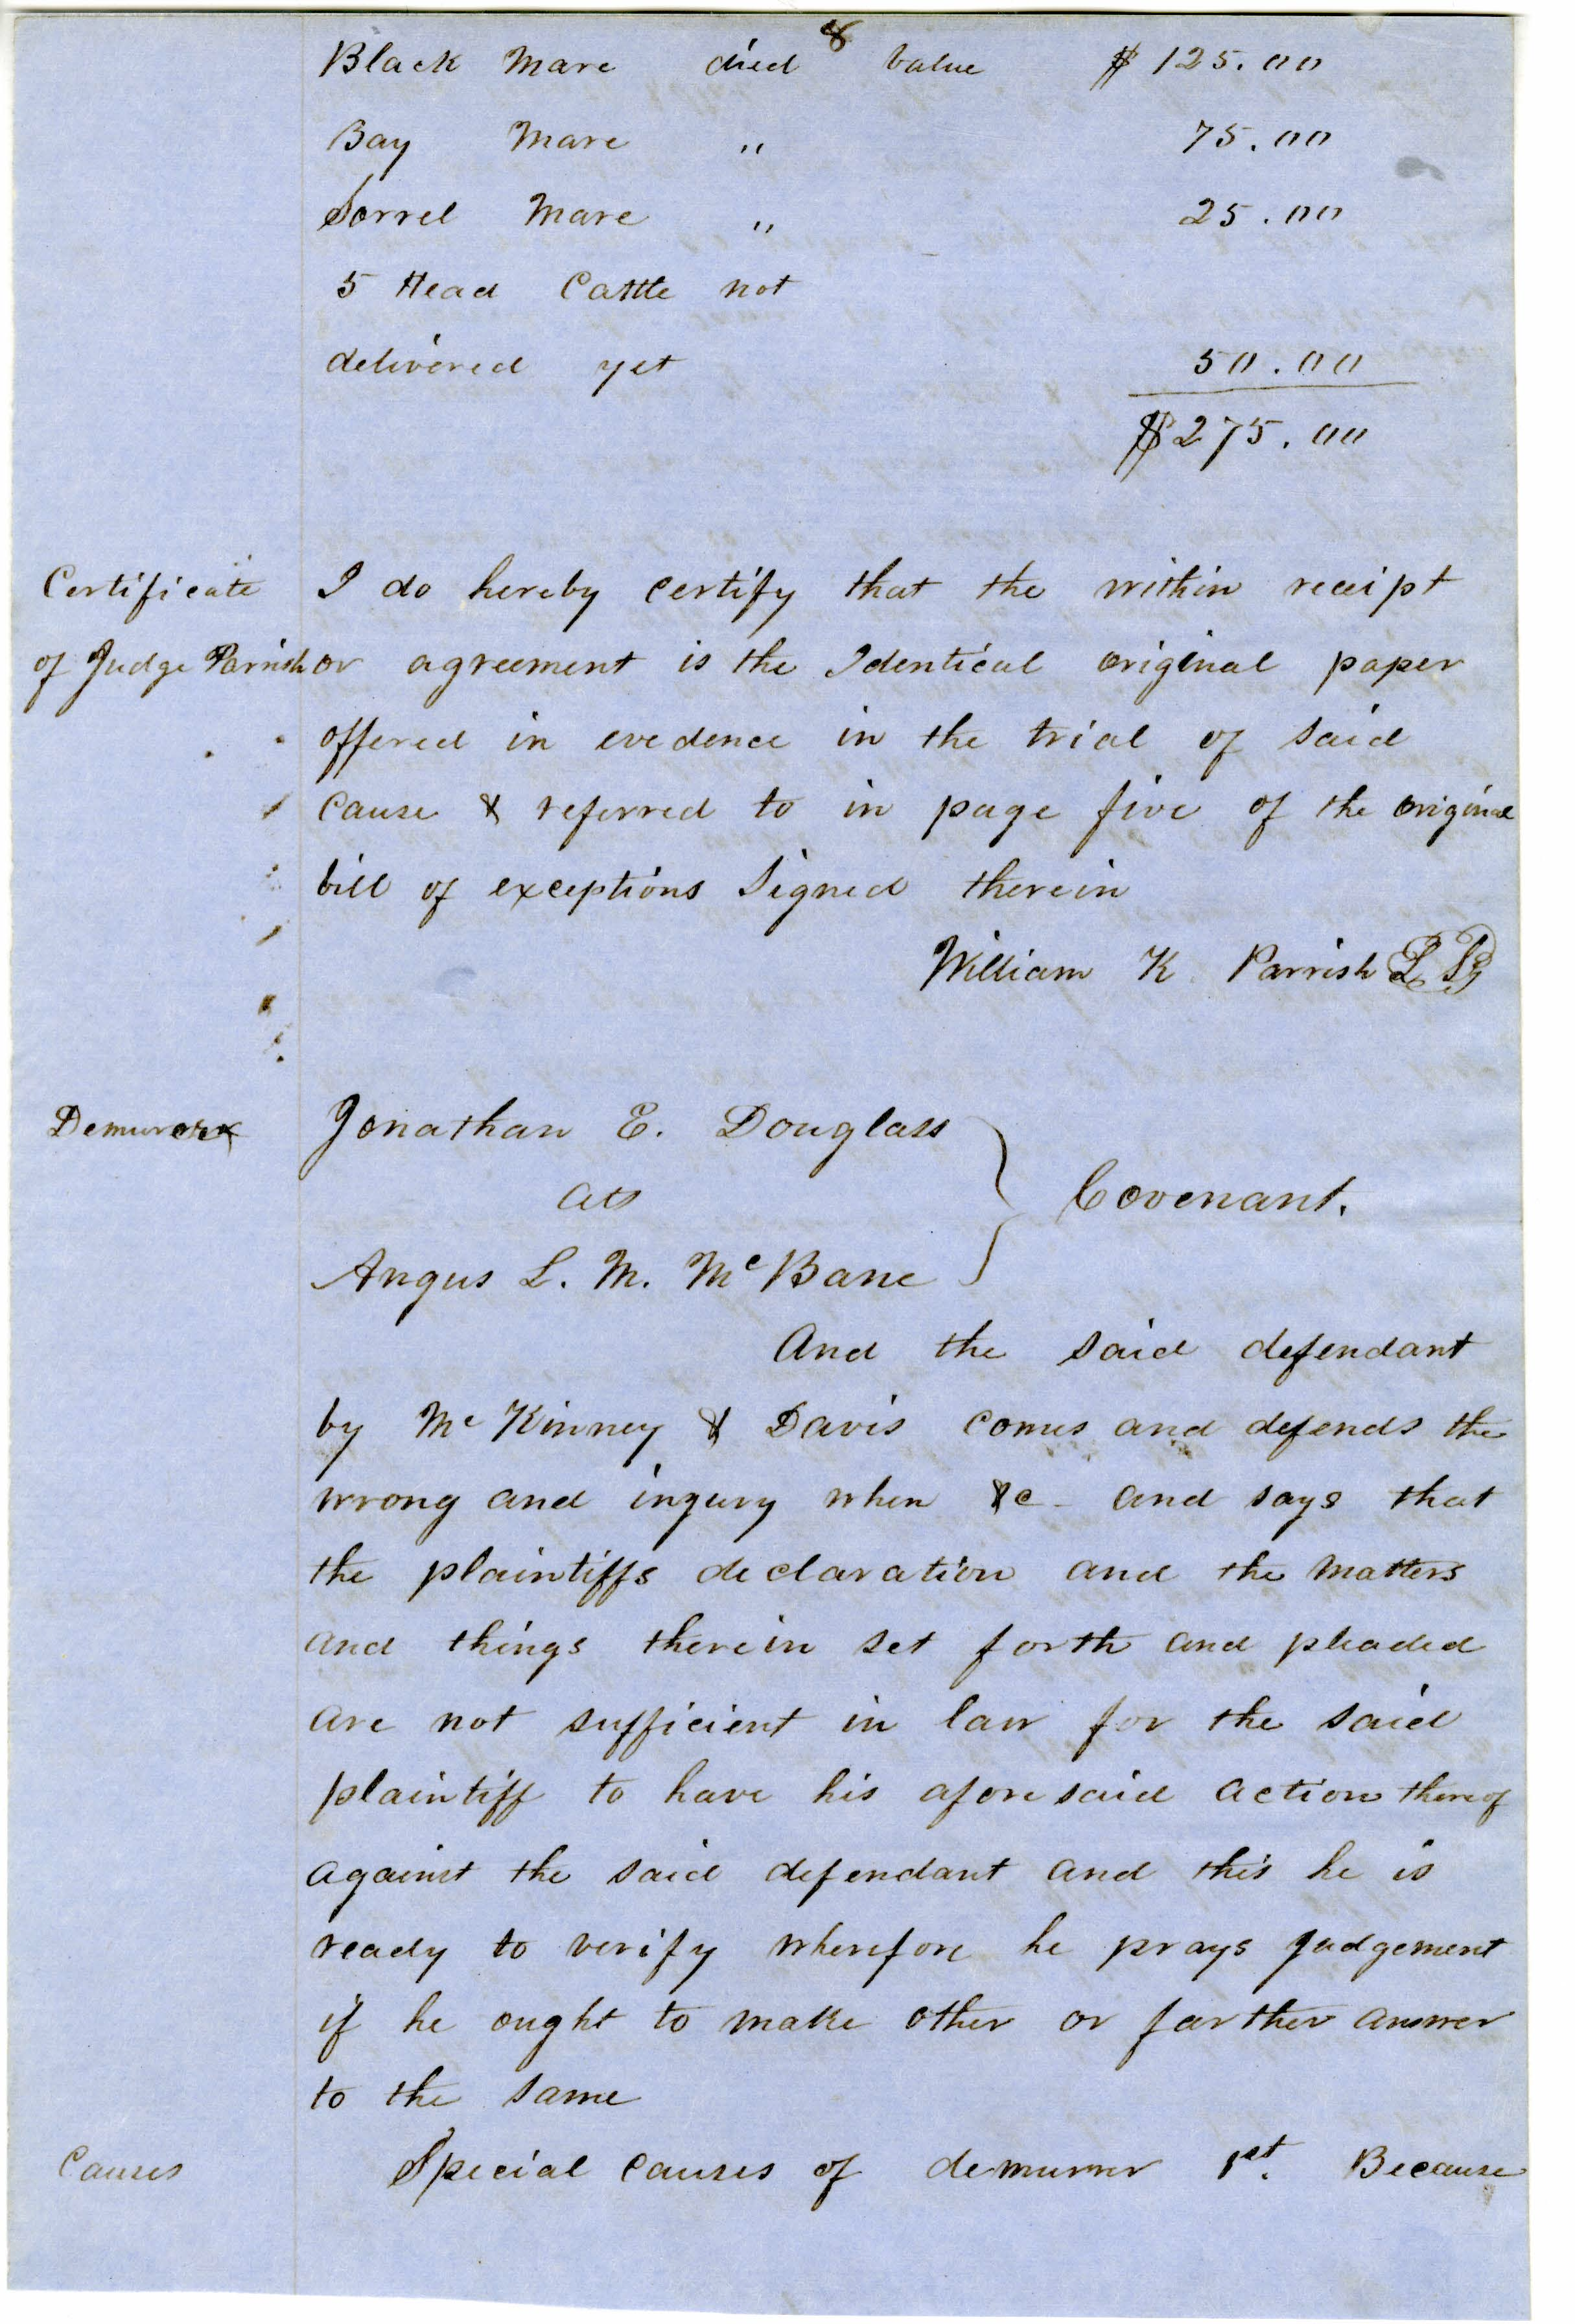 8
Black Mare died value $125.00
Bay Mare " 75.00
Sorrel Mare " 25.00
5 Head Cattle not
delivered yet 50.00
$275.00
Certificate
of Judge Parrish
I do hereby certify that the within receipt
or agreement is the Identical original paper
offered in evedence in the trial of said
cause & referred to in page five of the original
bill of exceptions Signed therein
William K Parrish L S
Demurer
Jonathan E. Douglass
ats
Angus L. M. McBane
Covenant.
And the said defendant
by McKinney & Davis comes and defends the
wrong and ingury when &c - and says that
the plaintiffs declaration and the matters
and things therein set forth and pleaded
are not sufficient in law for the said
plaintiff to have his aforesaid action thereof
against the said defendant and this he is
ready to verify wherefore he prays judgement
if he ought to make other or farther answer
to the same
Causes
Special causes of demurrer 1st. Because